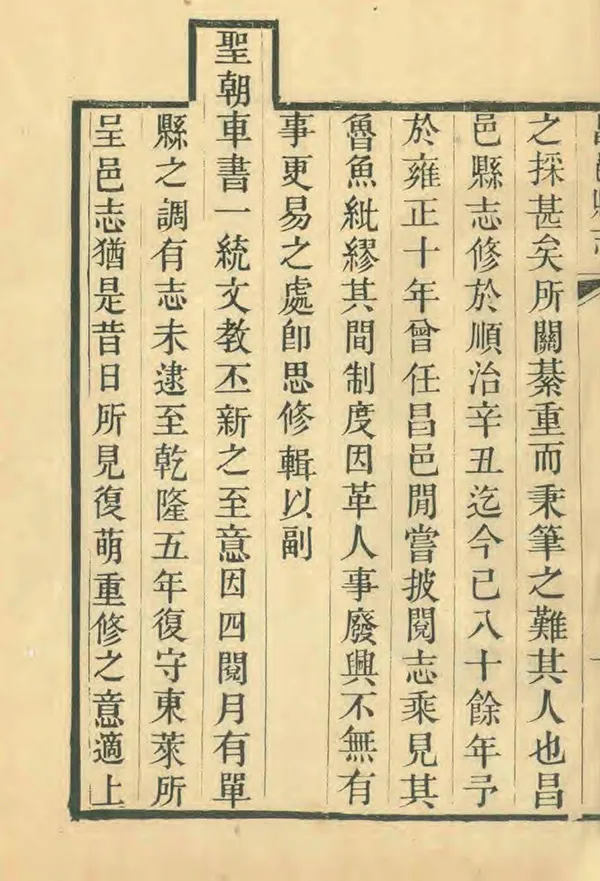 昌邑縣志
之採甚矣所關綦重而秉筆之難其人也昌
邑縣志修於順治辛丑迄今已八十餘年予
於雍正十年曾任昌邑閒嘗披閱志乘見其
魯魚紕繆其間制度因革人事廢興不無有
事更易之處卽思修輯以副
聖朝車書一統文教丕新之至意因四閱月有單
縣之調有志未逮至乾隆五年復守東萊所
呈邑志猶是昔日所見復萌重修之意適上